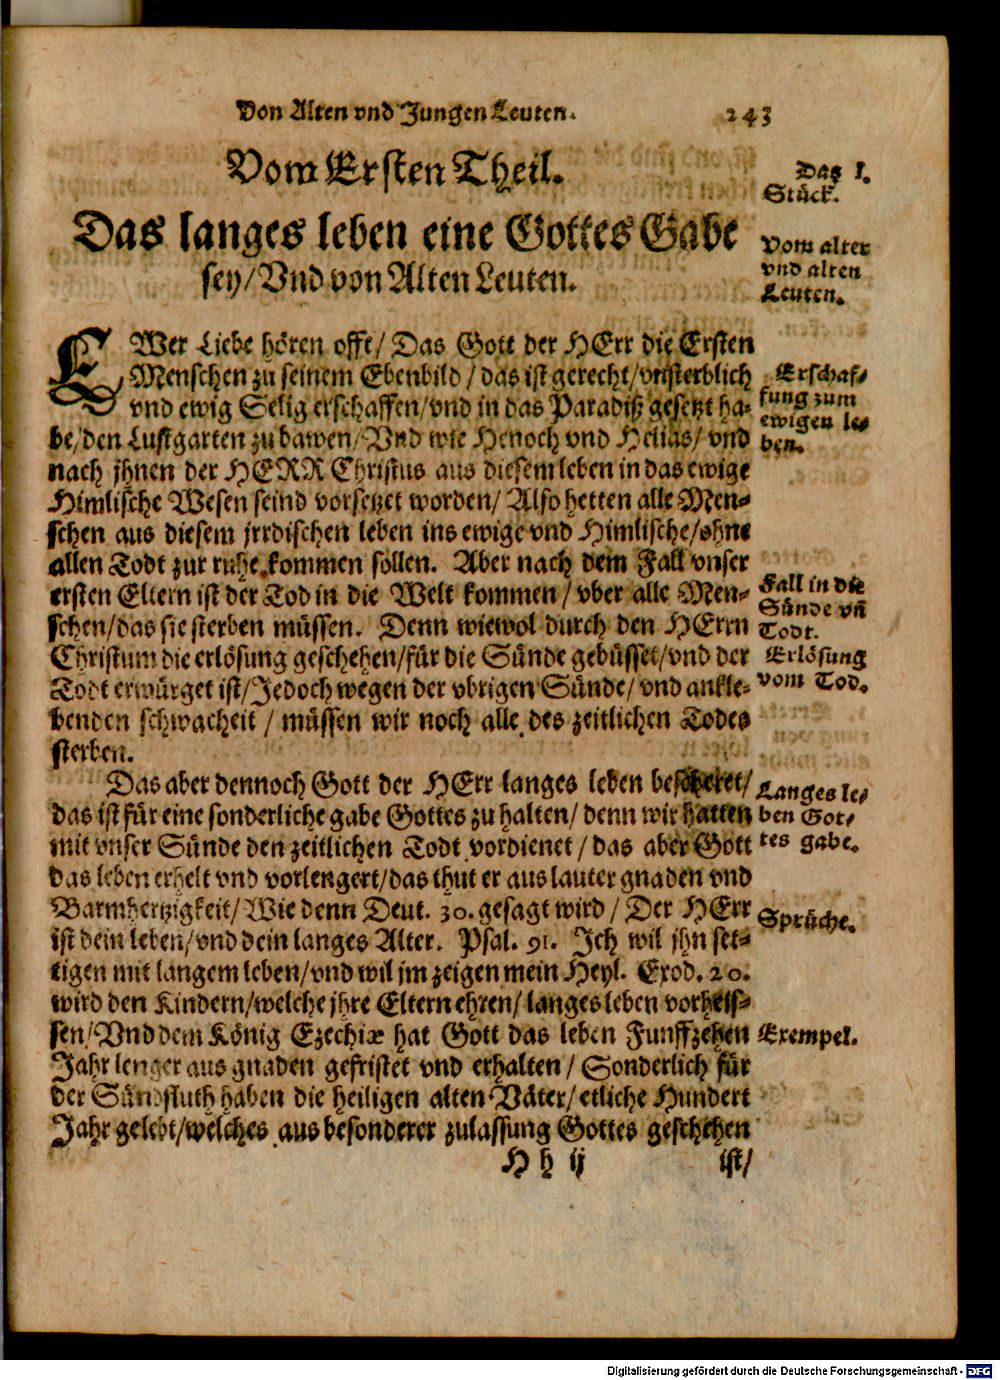 Von Alten vnd Jungen Leuten. 243
Vom Ersten Theil.
Das I.
Stück.
Das langes leben eine Gottes Gabe
sey/Vnd von Alten Leuten.
Vom alter
vnd alten
Leuten.
EWer Liebe hören offt/ Das Gott der HErr die Ersten
Menschen zu seinem Ebenbild/ das ist gerecht/vnsterblich
vnd ewig Selig erschaffen/vnd in das Paradiß gesetzt ha-
be/den Lustgarten zu bawen/Vnd wie Henoch vnd Helias/ vnd
nach jhnen der HERR Christus aus diesem leben in das ewige
Himlische Wesen seind vorsetzet worden/ Also hetten alle Men-
schen aus diesem jrrdischen leben ins ewige vnd Himlische/ohne
allen Todt zur ruhe kommen sollen. Aber nach dem Fall vnser
ersten Eltern ist der Tod in die Welt kommen/ vber alle Men-
schen/das sie sterben müssen. Denn wiewol durch den HErrn
Christum die erlösung geschehen/für die Sünde gebüsset/vnd der
Todt erwürget ist/Jedoch wegen der vbrigen Sünde/ vnd ankle-
benden schwacheit / müssen wir noch alle des zeitlichen Todes
sterben.
Erschaf-
fung zum
ewigen le-
ben.
Fall in die
Sünde vñ
Todt.
Erlösung
vom Tod.
Das aber dennoch Gott der HErr langes leben bescheret/
das ist für eine sonderliche gabe Gottes zu halten/ denn wir hatten
mit vnser Sünde den zeitlichen Todt vordienet/ das aber Gott
das leben erhelt vnd vorlengert/das thut er aus lauter gnaden vnd
Barmhertzigkeit/Wie denn Deut. 30. gesagt wird/ Der HErr
ist dein leben/vnd dein langes Alter. Psal. 91. Ich wil jhn set-
tigen mit langem leben/vnd wil jm zeigen mein Heyl. Exod. 20.
wird den Kindern/welche jhre Eltern ehren/ langes leben vorheis-
sen/Vnd dem König Ezechiæ hat Gott das leben Funffzehen
Jahr lenger aus gnaden gefristet vnd erhalten/ Sonderlich für
der Sündfluth haben die heiligen alten Väter/ etliche Hundert
Jahr gelebt/welches aus besonderer zulassung Gottes geschehen
Langes le-
ben Got-
tes gabe.
Sprüche.
Exempel.
H h ij ist/
Digitalisierung gefördert durch die Deutsche Forschungsgemeinschaft - DFG